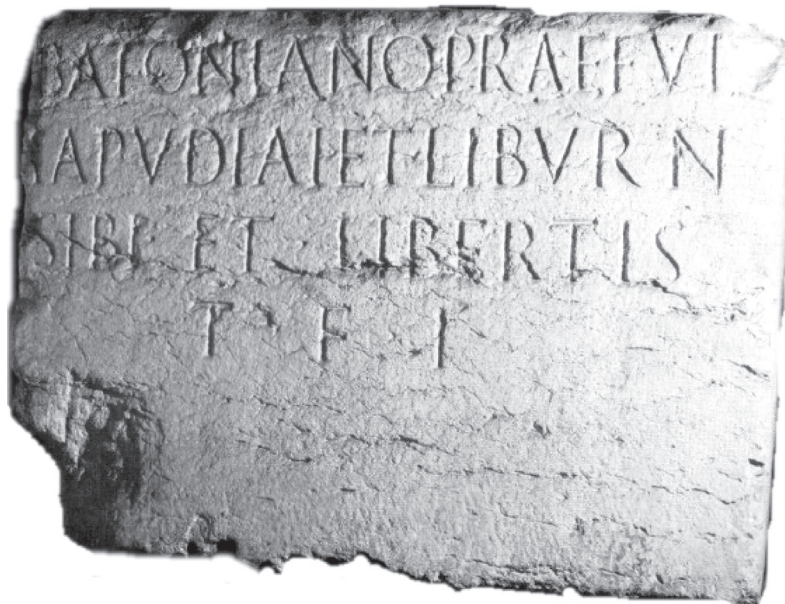 BATONIANO PRAEFVI
IAPVDIAI ET LIBVRN
SIBI · ET · LIBERTIS
T · F · I